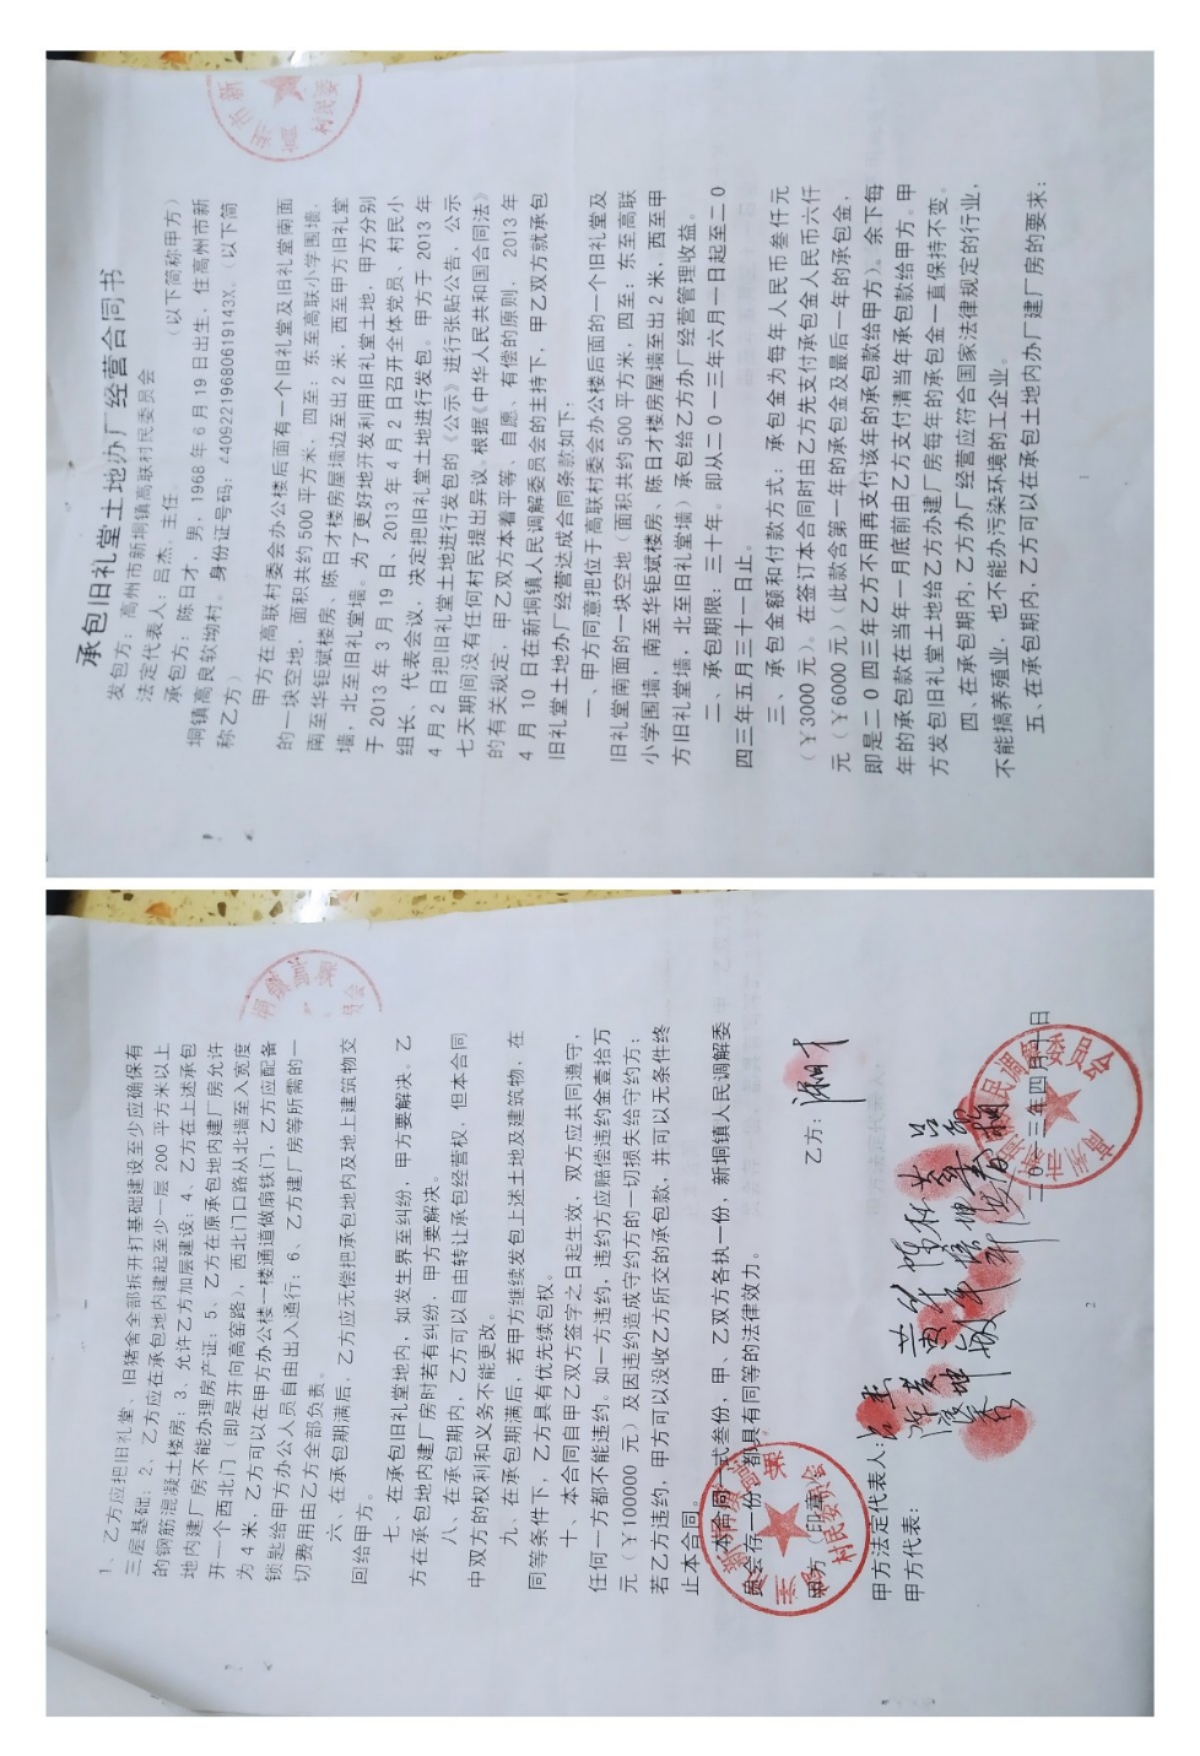 承包旧礼堂土地办厂经营合同书
发包方：高州市新垌镇高联村民委员会 （以下简称甲方）
法定代表人：吕杰．主任．
承包方：陈日才，男，1968年6月19日出生，住高州市新
垌镇高良软坳村。身份证号码：44092219680619143X。（以下简
称乙方）
甲方在高联村委会办公楼后面有一个旧礼堂及旧礼堂南面
的一块空地，面积共约500平方米，四至：东至高联小学围墙，
南至华钜斌楼房、陈日才楼房屋墙边至出2米，西至甲方旧礼堂
墙，北至旧礼堂墙。为了更好地开发利用旧礼堂土地，甲方分别
于2013年3月19日、2013年4月2日召开全体党员、村民小
组长、代表会议，决定把旧礼堂土地进行发包。甲方于2013年
4月2日把旧礼堂土地进行发包的《公示》进行张贴公告，公示
七天期间没有任何村民提出异议。根据《中华人民共和国合同法》
的有关规定，甲乙双方本着平等、自愿、有偿的原则，2013年
4月10日在新垌镇人民调解委员会的主持下，甲乙双方就承包
旧礼堂土地办厂经营达成合同条款如下：
一、甲方同意把位于高联村委会办公楼后面的一个旧礼堂及
旧礼堂南面的一块空地（面积共约500平方米，四至：东至高联
小学围墙，南至华钜斌楼房、陈日才楼房屋墙至出2米，西至甲
方旧礼堂墙，北至旧礼堂墙）承包给乙方办厂经营管理收益。
二、承包期限：三十年。即从二0一三年六月一日起至二0
四三年五月三十一日止。
三、承包金额和付款方式：承包金为每年人民币叁仟元
（￥3000元）。在签订本合同时由乙方先支付承包金人民币六仟
元（￥6000元）（此款含第一年的承包金及最后一年的承包金，
即是二0四三年乙方不用再支付该年的承包款给甲方）。余下每
年的承包款在当年一月底前由乙方支付清当年承包款给甲方。甲
方发包旧礼堂土地给乙方办建厂房每年的承包金一直保持不变。
四、在承包期内，乙方办厂经营应符合国家法律规定的行业，
不能搞养殖业，也不能办污染环境的工企业。
五、在承包期内，乙方可以在承包土地内办厂建厂房的要求：
1
1、乙方应把旧礼堂、旧猪舍全部拆开打基础建设至少应确保有
三层基础；2、乙方应在承包地内建起至少一层200平方米以上
的钢筋混凝土楼房；3、允许乙方加层建设；4、乙方在上述承包
地内建厂房不能办理房产证；5、乙方在原承包地内建厂房允许
开一个西北门（即是开向高窑路），西北门口路从北墙至入宽度
为4米，乙方可以在甲方办公楼一楼通道做扇铁门，乙方应配备
锁匙给甲方办公人员自由出入通行；6、乙方建厂房等所需的一
切费用由乙方全部负责。
六、在承包期满后，乙方应无偿把承包地内及地上建筑物交
回给甲方。
七、在承包旧礼堂地内，如发生界至纠纷，甲方要解决。乙
方在承包地内建厂房时若有纠纷，甲方要解决。
八、在承包期内，乙方可以自由转让承包经营权，但本合同
中双方的权利和义务不能更改。
九、在承包期满后，若甲方继续发包上述土地及建筑物，在
同等条件下，乙方具有优先续包权。
十、本合同自甲乙双方签字之日起生效，双方应共同遵守，
任何一方都不能违约。如一方违约，违约方应赔偿违约金壹拾万
元（￥100000元）及因违约造成守约方的一切损失给守约方；
若乙方违约，甲方可以没收乙方所交的承包款，并可以无条件终
止本合同。
本合同一式叁份，甲、乙双方各执一份，新垌镇人民调解委
员会存一份，都具有同等的法律效力。
甲方（印章）： 乙方：陈日才
甲方法定代表人：吕杰
甲方代表：
二0一三年四月十日
村民委员会
2